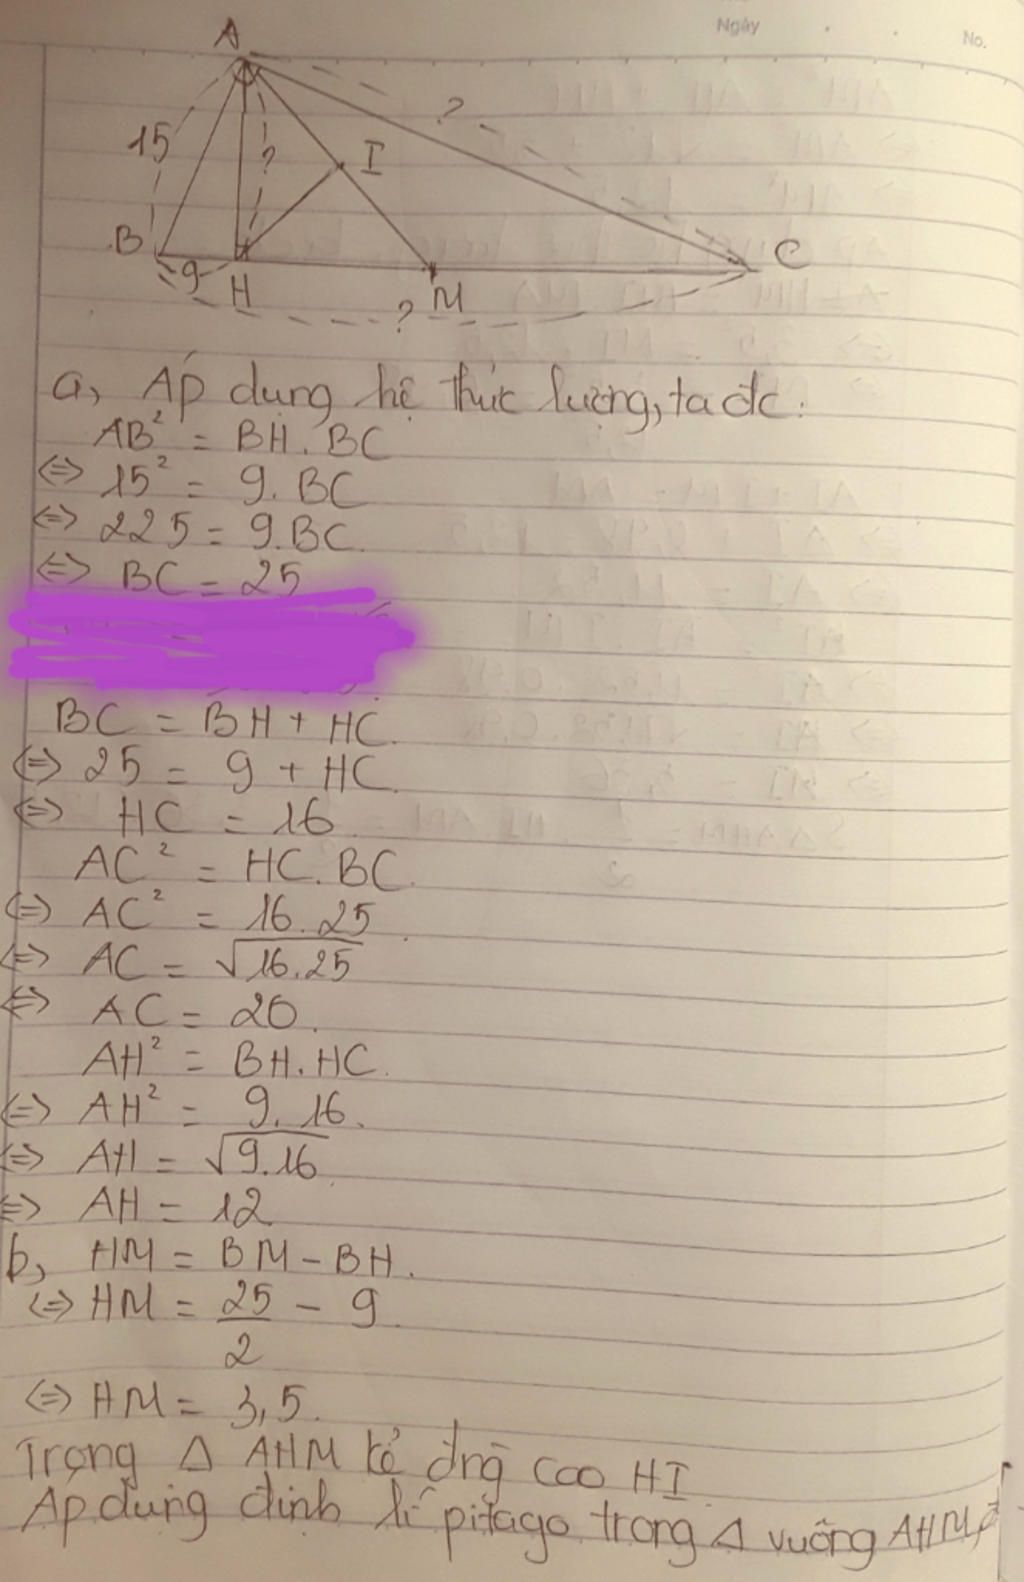 Ngày
No.
A
15
?
?
I
B
9
H
M
C
?
a, Áp dụng hệ thức lượng, ta đc:
AB² = BH. BC
<=> 15² = 9. BC
<=> 225 = 9.BC.
<=> BC = 25
BC = BH + HC.
<=> 25 = 9 + HC.
<=> HC = 16
AC² = HC. BC.
<=> AC² = 16.25
<=> AC = √16.25
<=> AC = 20.
AH² = BH. HC.
<=> AH² = 9. 16.
<=> AH = √9.16
<=> AH = 12
b, HM = BM - BH.
<=> HM = 25/2 - 9
<=> HM = 3,5.
Trong Δ AHM kẻ đng cao HI
Áp dụng định lí pitago trong Δ vuông AHM,